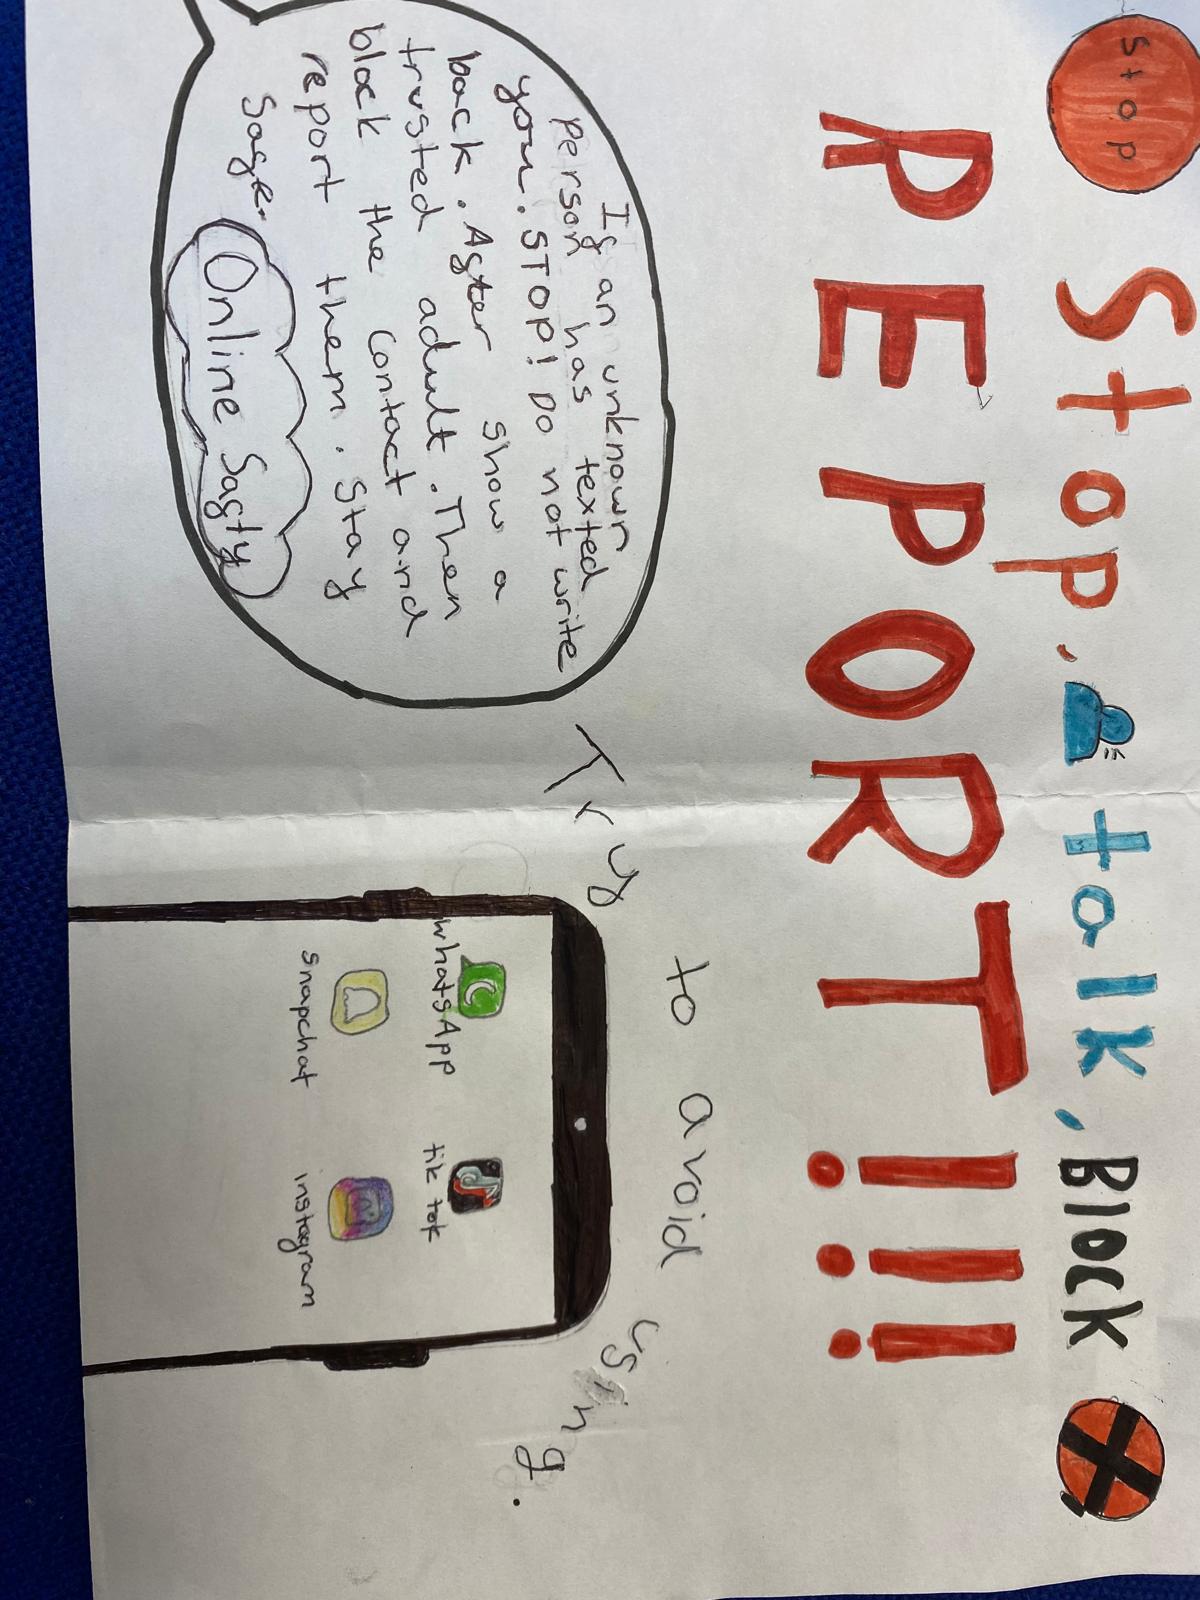 stop
Stop, talk, Block
REPORT!!!
If an unknown
person has texted
you. STOP! Do not write
back. After show a
trusted adult. Then
block the contact and
report them. Stay
safe.
Online Safty
Try to avoid using.
whatsApp
tik tok
snapchat
instagram